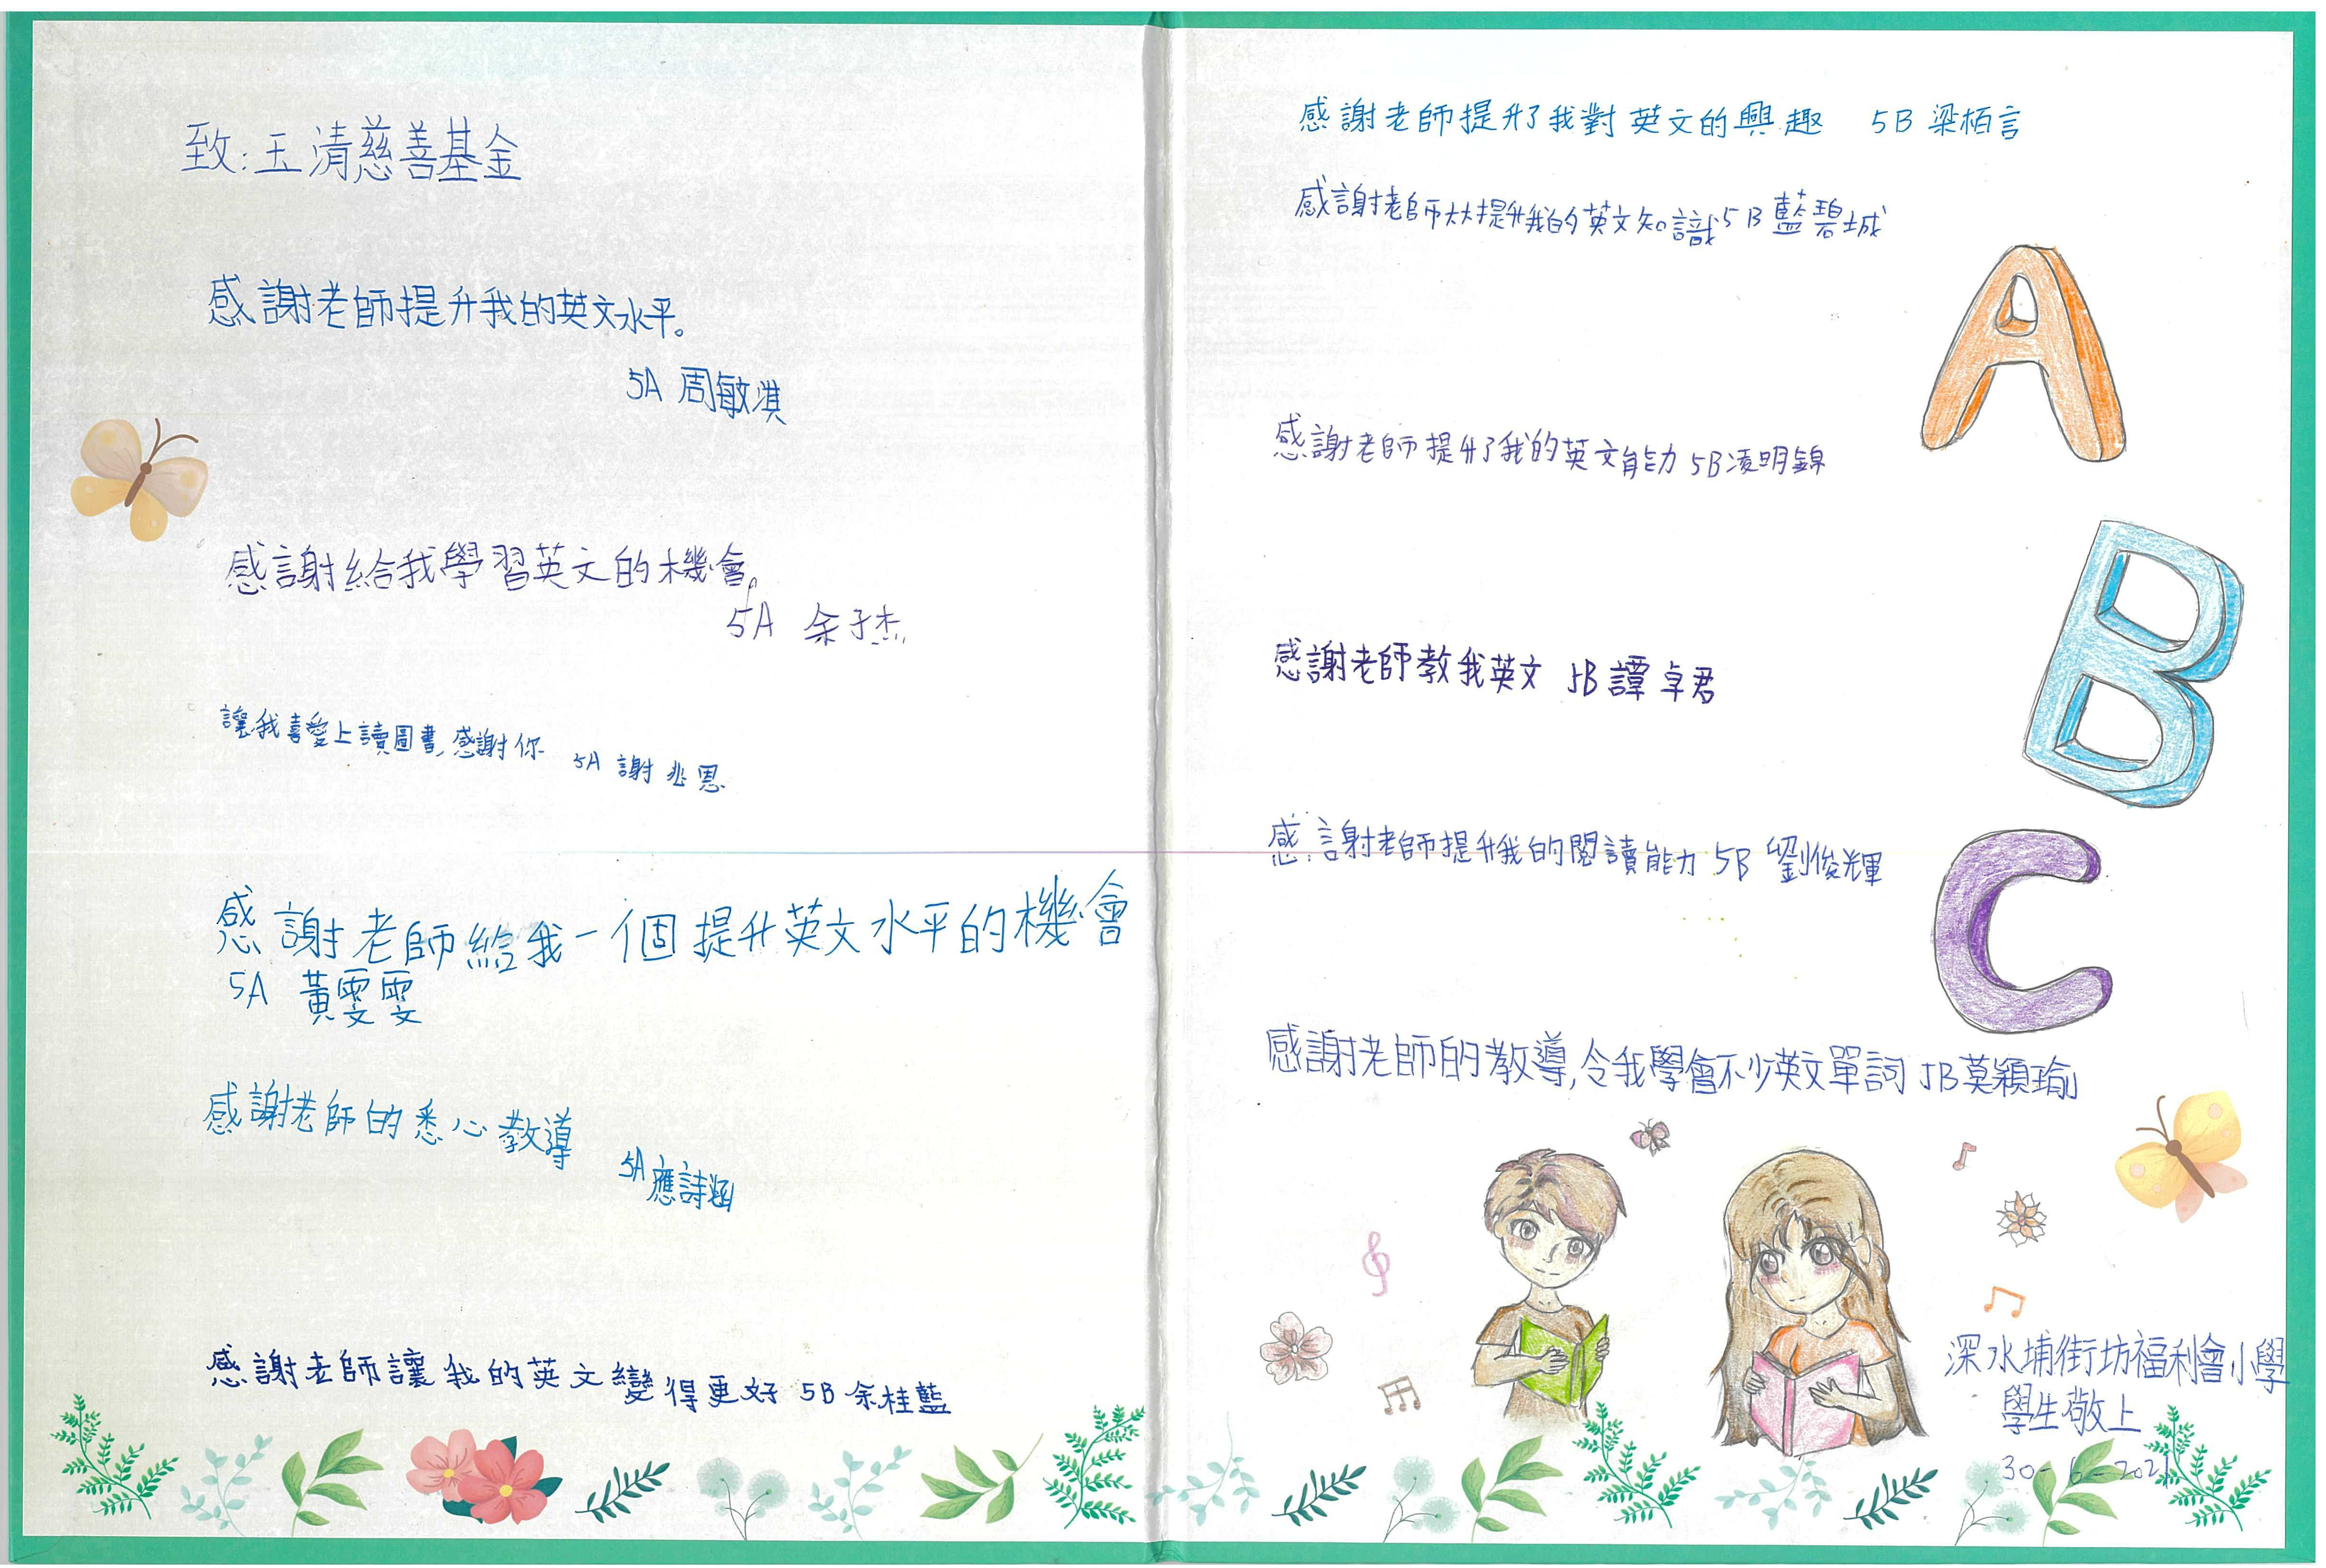 致:玉清慈善基金
感謝老師提升我的英文水平。
5A 周敏淇
感謝給我學習英文的機會。
5A 余子杰
讓我喜愛上讀圖書,感謝你 5A 謝兆恩
感謝老師給我一個提升英文水平的機會
5A 黃雯雯
感謝老師的悉心教導
5A應詩涵
感謝老師讓我的英文變得更好 5B 余桂藍
感謝老師提升了我對英文的興趣 5B 梁栢言
感謝老師大大提升我的英文知識 5B 藍碧城
感謝老師提升了我的英文能力 5B凌明錦
感謝老師教我英文 5B 譚卓君
感謝老師提升我的閱讀能力 5B 劉俊輝
感謝老師的教導,令我學會不少英文單詞 5B莫穎瑜
A
B
C
深水埔街坊福利會小學
學生敬上
30-6-2021